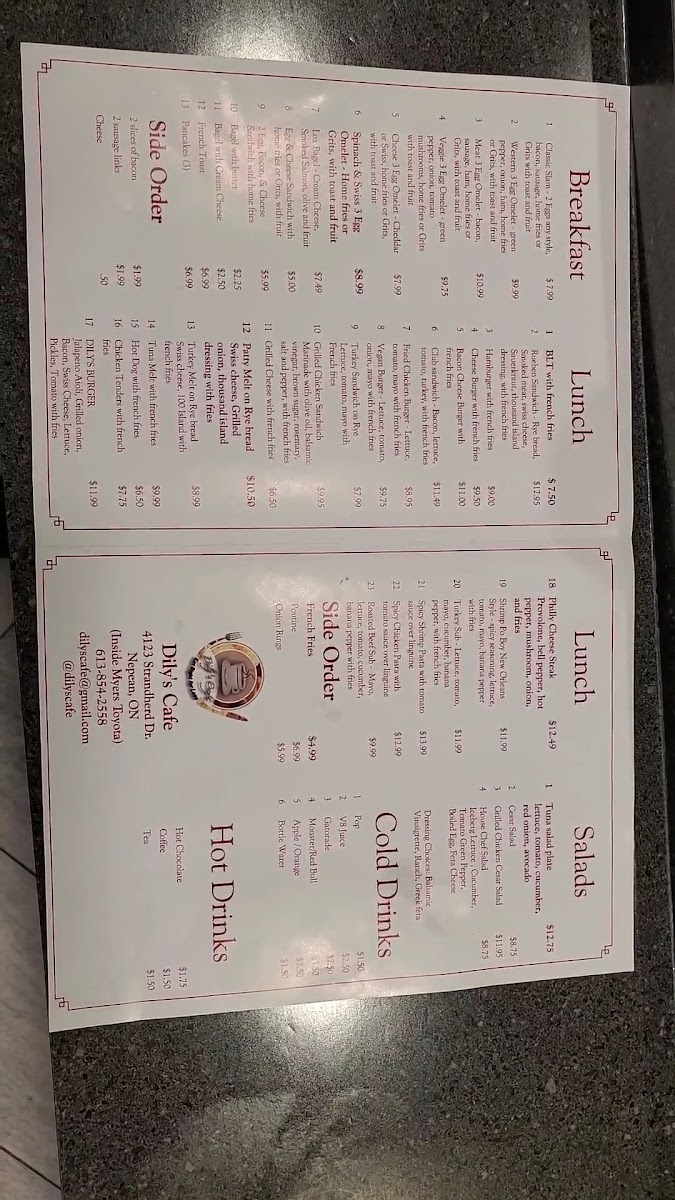 Breakfast
1 Classic Slam - 2 Eggs any style,
bacon, sausage, home fries or
Grits with toast and fruit $7.99
2 Western 3 Egg Omelet - green
pepper, onion, ham, home fries
or Grits, with toast and fruit $9.99
3 Meat 3 Egg Omelet - bacon,
sausage, ham, home fries or
Grits, with toast and fruit $10.99
4 Veggie 3 Egg Omelet - green
pepper, onion, tomato
mushrooms, home fries or Grits
with toast and fruit $9.75
5 Cheese 3 Egg Omelet - Cheddar
or Swiss, home fries or Grits,
with toast and fruit $7.99
6 Spinach & Swiss 3 Egg
Omelet - Home fries or
Grits, with toast and fruit $8.99
7 Lox Bagel - Cream Cheese,
Smoked Salmon, olive and fruit $7.49
8 Egg & Cheese Sandwich with
home fries or Grits, with fruit $5.00
9 2 Egg, Bacon, & Cheese
Sandwich with home fries $5.99
10 Bagel with butter $2.25
11 Bagel with Cream Cheese $2.50
12 French Toast $6.99
13 Pancakes (3) $6.99
Side Order
2 slices of bacon $1.99
2 sausage links $1.99
Cheese .50
Lunch
1 BLT with french fries $7.50
2 Rueben Sandwich - Rye bread,
Smoked meat, swiss cheese,
Sauerkraut, thousand island
dressing, with french fries $12.95
3 Hamburger with french fries $9.00
4 Cheese Burger with french fries $9.50
5 Bacon Cheese Burger with
french fries $11.00
6 Club sandwich - Bacon, lettuce,
tomato, turkey, with french fries $11.49
7 Fried Chicken Burger - Lettuce,
tomato, mayo with french fries $8.95
8 Vegan Burger - Lettuce, tomato,
onion, mayo with french fries $9.75
9 Turkey Sandwich on Rye
Lettuce, tomato, mayo with
French fries $7.99
10 Grilled Chicken Sandwich
Marinade with olive oil, balsamic
vinegar, brown sugar, rosemary,
salt and pepper, with french fries $9.95
11 Grilled Cheese with french fries $6.50
12 Patty Melt on Rye bread
Swiss cheese, Grilled
onion, thousand island
dressing with fries $10.50
13 Turkey Melt on Rye bread
Swiss cheese, 100 Island with
french fries $8.99
14 Tuna Melt with french fries $9.99
15 Hot Dog with french fries $6.50
16 Chicken Tenders with french
fries $7.75
17 DILY'S BURGER
Jalapeno Aioli, Grilled onion,
Bacon, Swiss Cheese, Lettuce,
Pickles, Tomato with fries $11.99
Lunch
18 Philly Cheese Steak
Provolone, bell pepper, hot
pepper, mushroom, onion,
and fries $12.49
19 Shrimp Po Boy New Orleans
Style - spicy seasoning, lettuce,
tomato, mayo, banana pepper
with fries $11.99
20 Turkey Sub - Lettuce, tomato,
mayo, cucumber, banana
pepper, with french fries $11.99
21 Spicy Shrimp Pasta with tomato
sauce over linguine $13.99
22 Spicy Chicken Pasta with
tomato sauce over linguine $12.99
23 Roasted Beef Sub - Mayo,
lettuce, tomato, cucumber,
banana pepper with fries $9.99
Side Order
French Fries $4.99
Poutine $6.99
Onion Rings $5.99
Dily's Cafe
4123 Strandherd Dr.
Nepean, ON
(Inside Myers Toyota)
613-854-2558
dilyscafe@gmail.com
@dilyscafe
Salads
1 Tuna salad plate
lettuce, tomato, cucumber,
red onion, avocado $12.75
2 Cesar Salad $8.75
3 Grilled Chicken Cesar Salad $11.95
4 House Chef Salad
Iceberg Lettuce, Cucumber,
Tomato Green Pepper,
Boiled Egg, Feta Cheese $8.75
Dressing Choices: Balsamic
Vinaigrette, Ranch, Greek feta
Cold Drinks
1 Pop $1.50
2 V8 Juice $2.50
3 Gatorade $2.50
4 Monster/Red Bull
5 Apple / Orange
6 Bottle Water $1.50
Hot Drinks
Hot Chocolate $1.75
Coffee $1.50
Tea $1.50